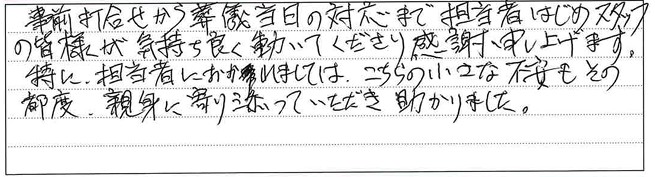 事前打合せから葬儀当日の対応まで担当者はじめスタッフ
の皆様が気持ち良く動いてくださり感謝申し上げます。
特に、担当者におかれましては、こちらの小さな不安もその
都度、親身に寄り添っていただき助かりました。